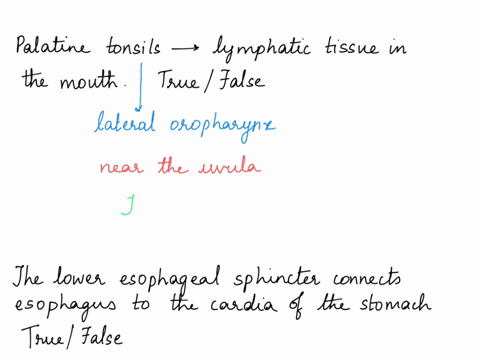 Palatine tonsils → lymphatic tissue in
the mouth. True/False
lateral oropharynx
near the uvula
T
The lower esophageal sphincter connects
esophagus to the cardia of the stomach
True/False